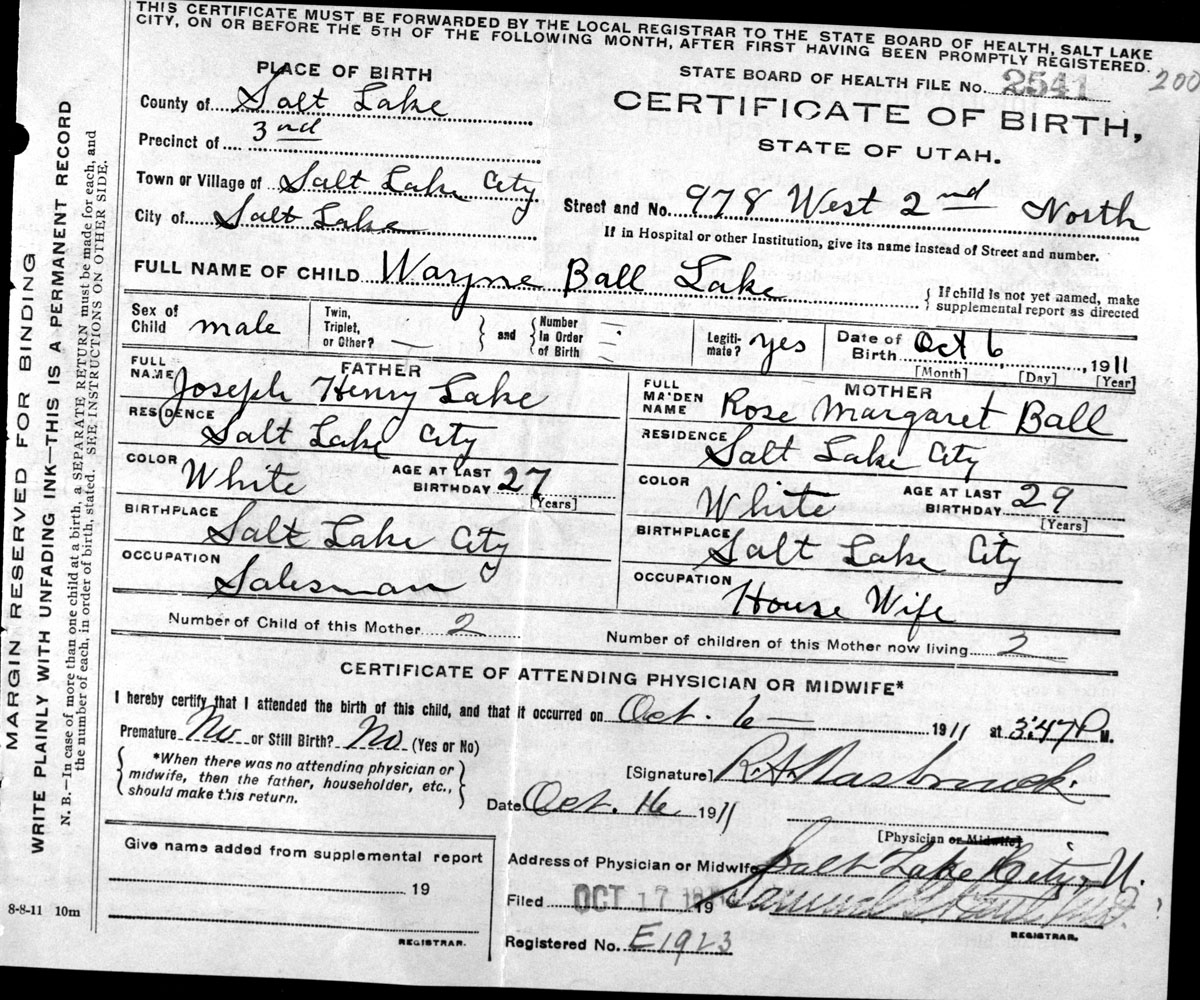 THIS CERTIFICATE MUST BE FORWARDED BY THE LOCAL REGISTRAR TO THE STATE BOARD OF HEALTH, SALT LAKE
CITY, ON OR BEFORE THE 5TH OF THE FOLLOWING MONTH, AFTER FIRST HAVING BEEN PROMPTLY REGISTERED.
STATE BOARD OF HEALTH FILE No. 2541 200
CERTIFICATE OF BIRTH,
STATE OF UTAH.
PLACE OF BIRTH
County of Salt Lake
Precinct of 3nd
Town or Village of Salt Lake City
City of Salt Lake
Street and No. 978 West 2nd North
If in Hospital or other Institution, give its name instead of Street and number.
FULL NAME OF CHILD Wayne Ball Lake
{ If child is not yet named, make
supplemental report as directed
Sex of Child male
Twin, Triplet, or Other? —
and
Number In Order of Birth —
Legiti-mate? yes
Date of Birth Oct 6, 1911
[Month] [Day] [Year]
FATHER
FULL NAME Joseph Henry Lake
RESIDENCE Salt Lake City
COLOR White
AGE AT LAST BIRTHDAY 27
[Years]
BIRTHPLACE Salt Lake City
OCCUPATION Salesman
MOTHER
FULL MAIDEN NAME Rose Margaret Ball
RESIDENCE Salt Lake City
COLOR White
AGE AT LAST BIRTHDAY 29
[Years]
BIRTHPLACE Salt Lake City
OCCUPATION House Wife
Number of Child of this Mother 2
Number of children of this Mother now living 2
CERTIFICATE OF ATTENDING PHYSICIAN OR MIDWIFE*
I hereby certify that I attended the birth of this child, and that it occurred on Oct. 6 — 1911 at 3:47 P M.
Premature No or Still Birth? No (Yes or No)
*When there was no attending physician or
midwife, then the father, householder, etc.,
should make this return.
[Signature] R.A. Hasbrouck.
Date Oct. 16 1911
[Physician or Midwife]
Give name added from supplemental report
19
REGISTRAR.
Address of Physician or Midwife Salt Lake City, U.
Filed OCT 17 19
REGISTRAR.
Registered No. E1923
8-8-11 10m
MARGIN RESERVED FOR BINDING
WRITE PLAINLY WITH UNFADING INK—THIS IS A PERMANENT RECORD
N. B.—In case of more than one child at a birth, a SEPARATE RETURN must be made for each, and
the number of each, in order of birth, stated. SEE INSTRUCTIONS ON OTHER SIDE.